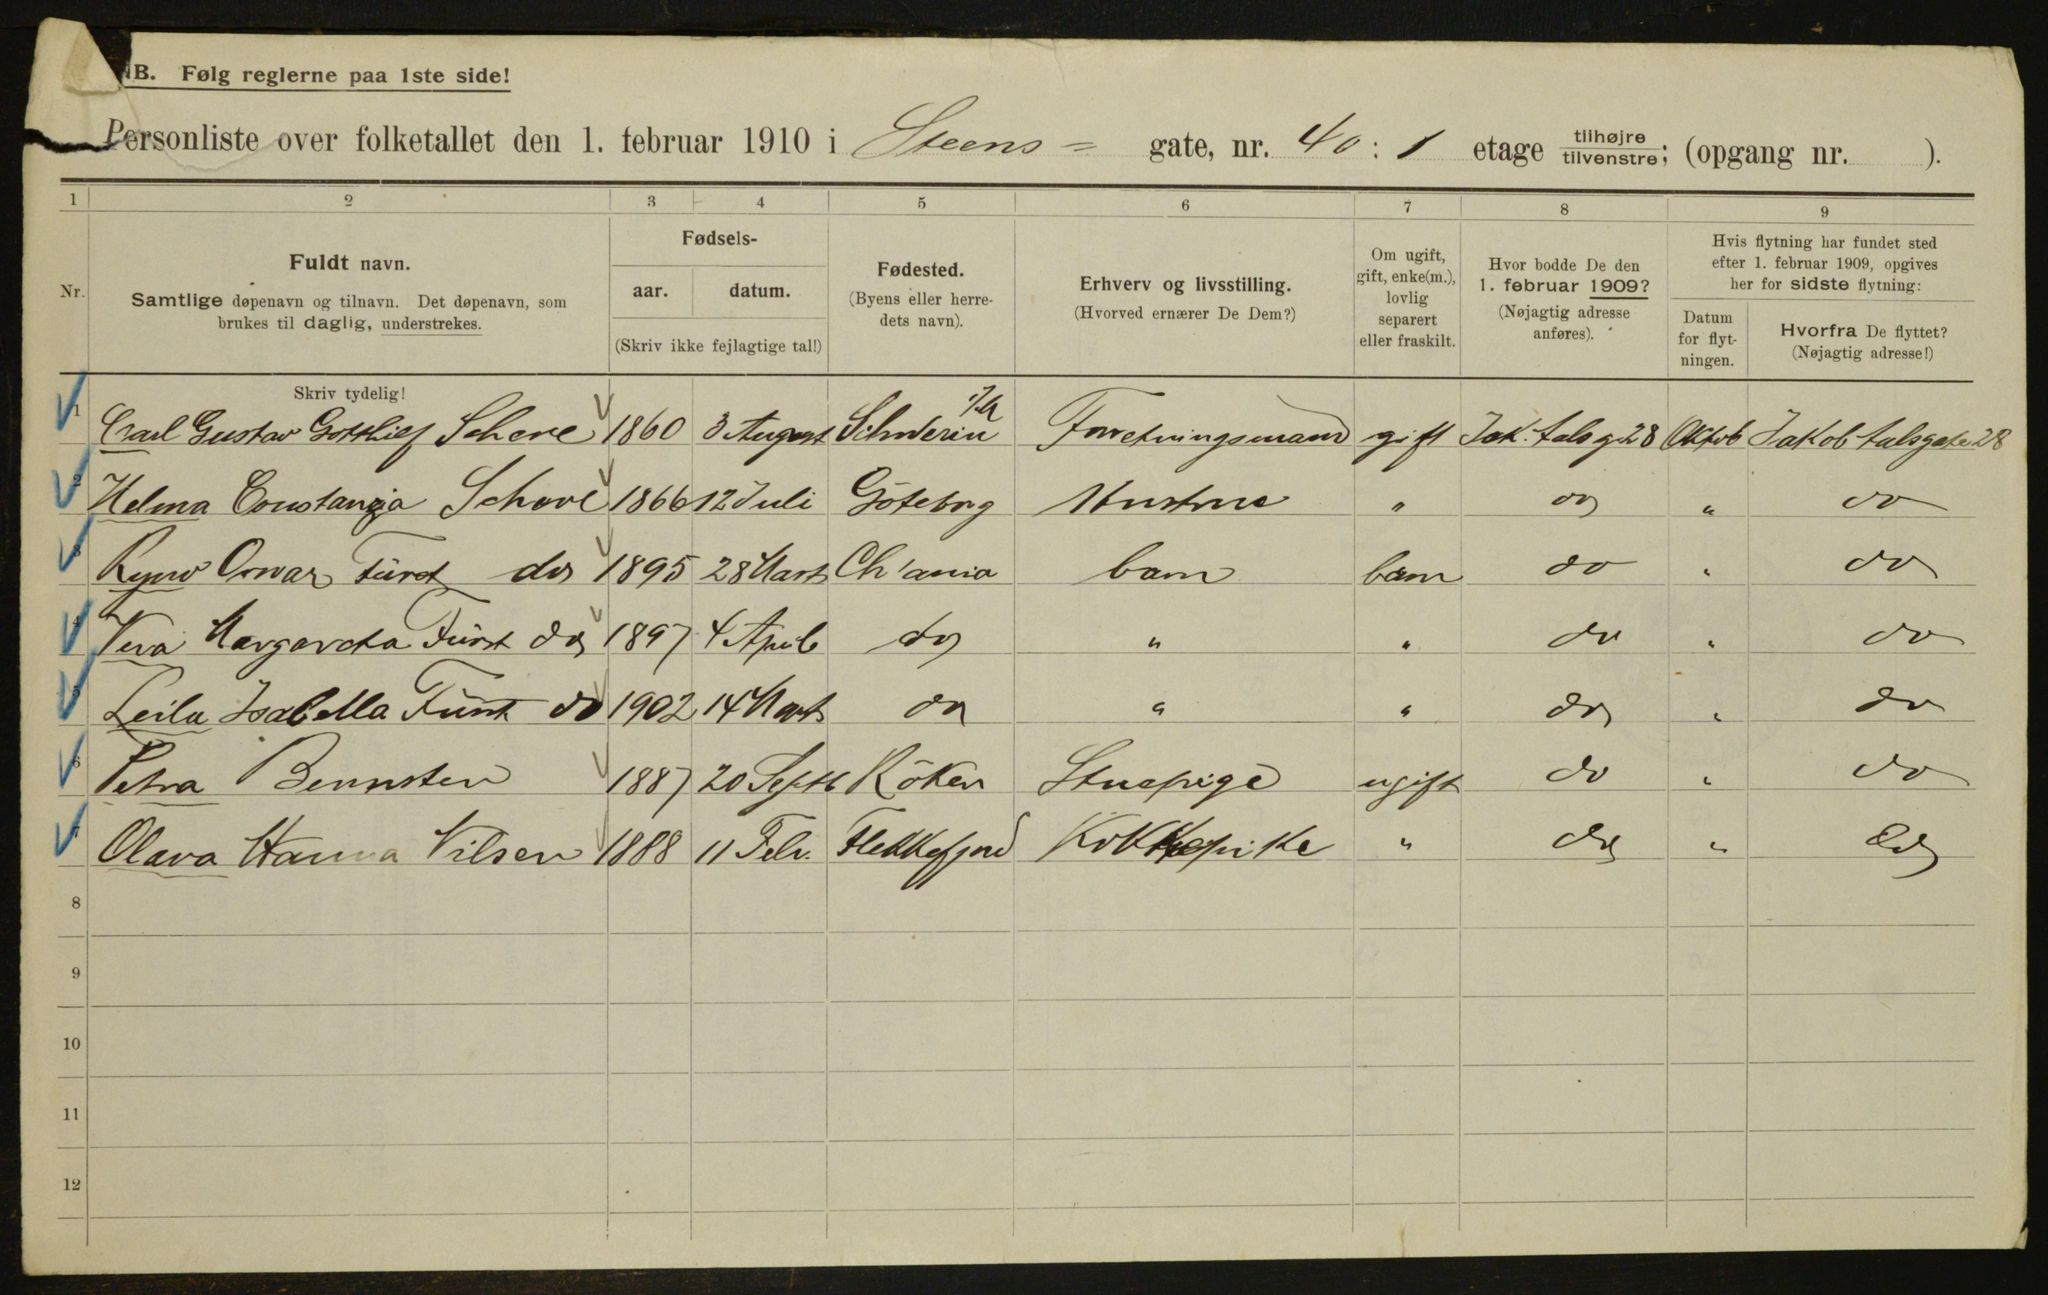 NB. Følg reglerne paa 1ste side!
Personliste over folketallet den 1. februar 1910 i Steens = gate, nr. 40 : 1 etage tilhøjre/tilvenstre; (opgang nr. ).
1 2 3 4 5 6 7 8 9
Nr.
Fuldt navn.
Samtlige døpenavn og tilnavn. Det døpenavn, som
brukes til daglig, understrekes.
Fødsels-
aar. datum.
(Skriv ikke fejlagtige tal!)
Fødested.
(Byens eller herre-
dets navn).
Erhverv og livsstilling.
(Hvorved ernærer De Dem?)
Om ugift,
gift, enke(m.),
lovlig
separert
eller fraskilt.
Hvor bodde De den
1. februar 1909?
(Nøjagtig adresse
anføres).
Hvis flytning har fundet sted
efter 1. februar 1909, opgives
her for sidste flytning:
Datum
for flyt-
ningen.
Hvorfra De flyttet?
(Nøjagtig adresse!)
Skriv tydelig!
1 Carl Gustav Gotthilf Scheve 1860 3 August Schwerin i/M Forretningsmand gift Jak. Aalsg 28 Oktob Jakob Aalsgate 28
2 Helma Constanzia Scheve 1866 12 Juli Göteborg Hustrue " do " do
3 Orvar Fürst do 1895 28 Marts Ch'ania barn barn do " do
4 Vera Margareta Fürst do 1897 4 April do " " do " do
5 Leila Isabella Fürst do 1902 14 Marts do " " do " do
6 Petra Berntsen 1887 20 Septb Röken Stuepige ugift do " do
7 Olava Hanna Nilsen 1888 11 Febr. Flekkefjord Kokkepike " do " do
8
9
10
11
12